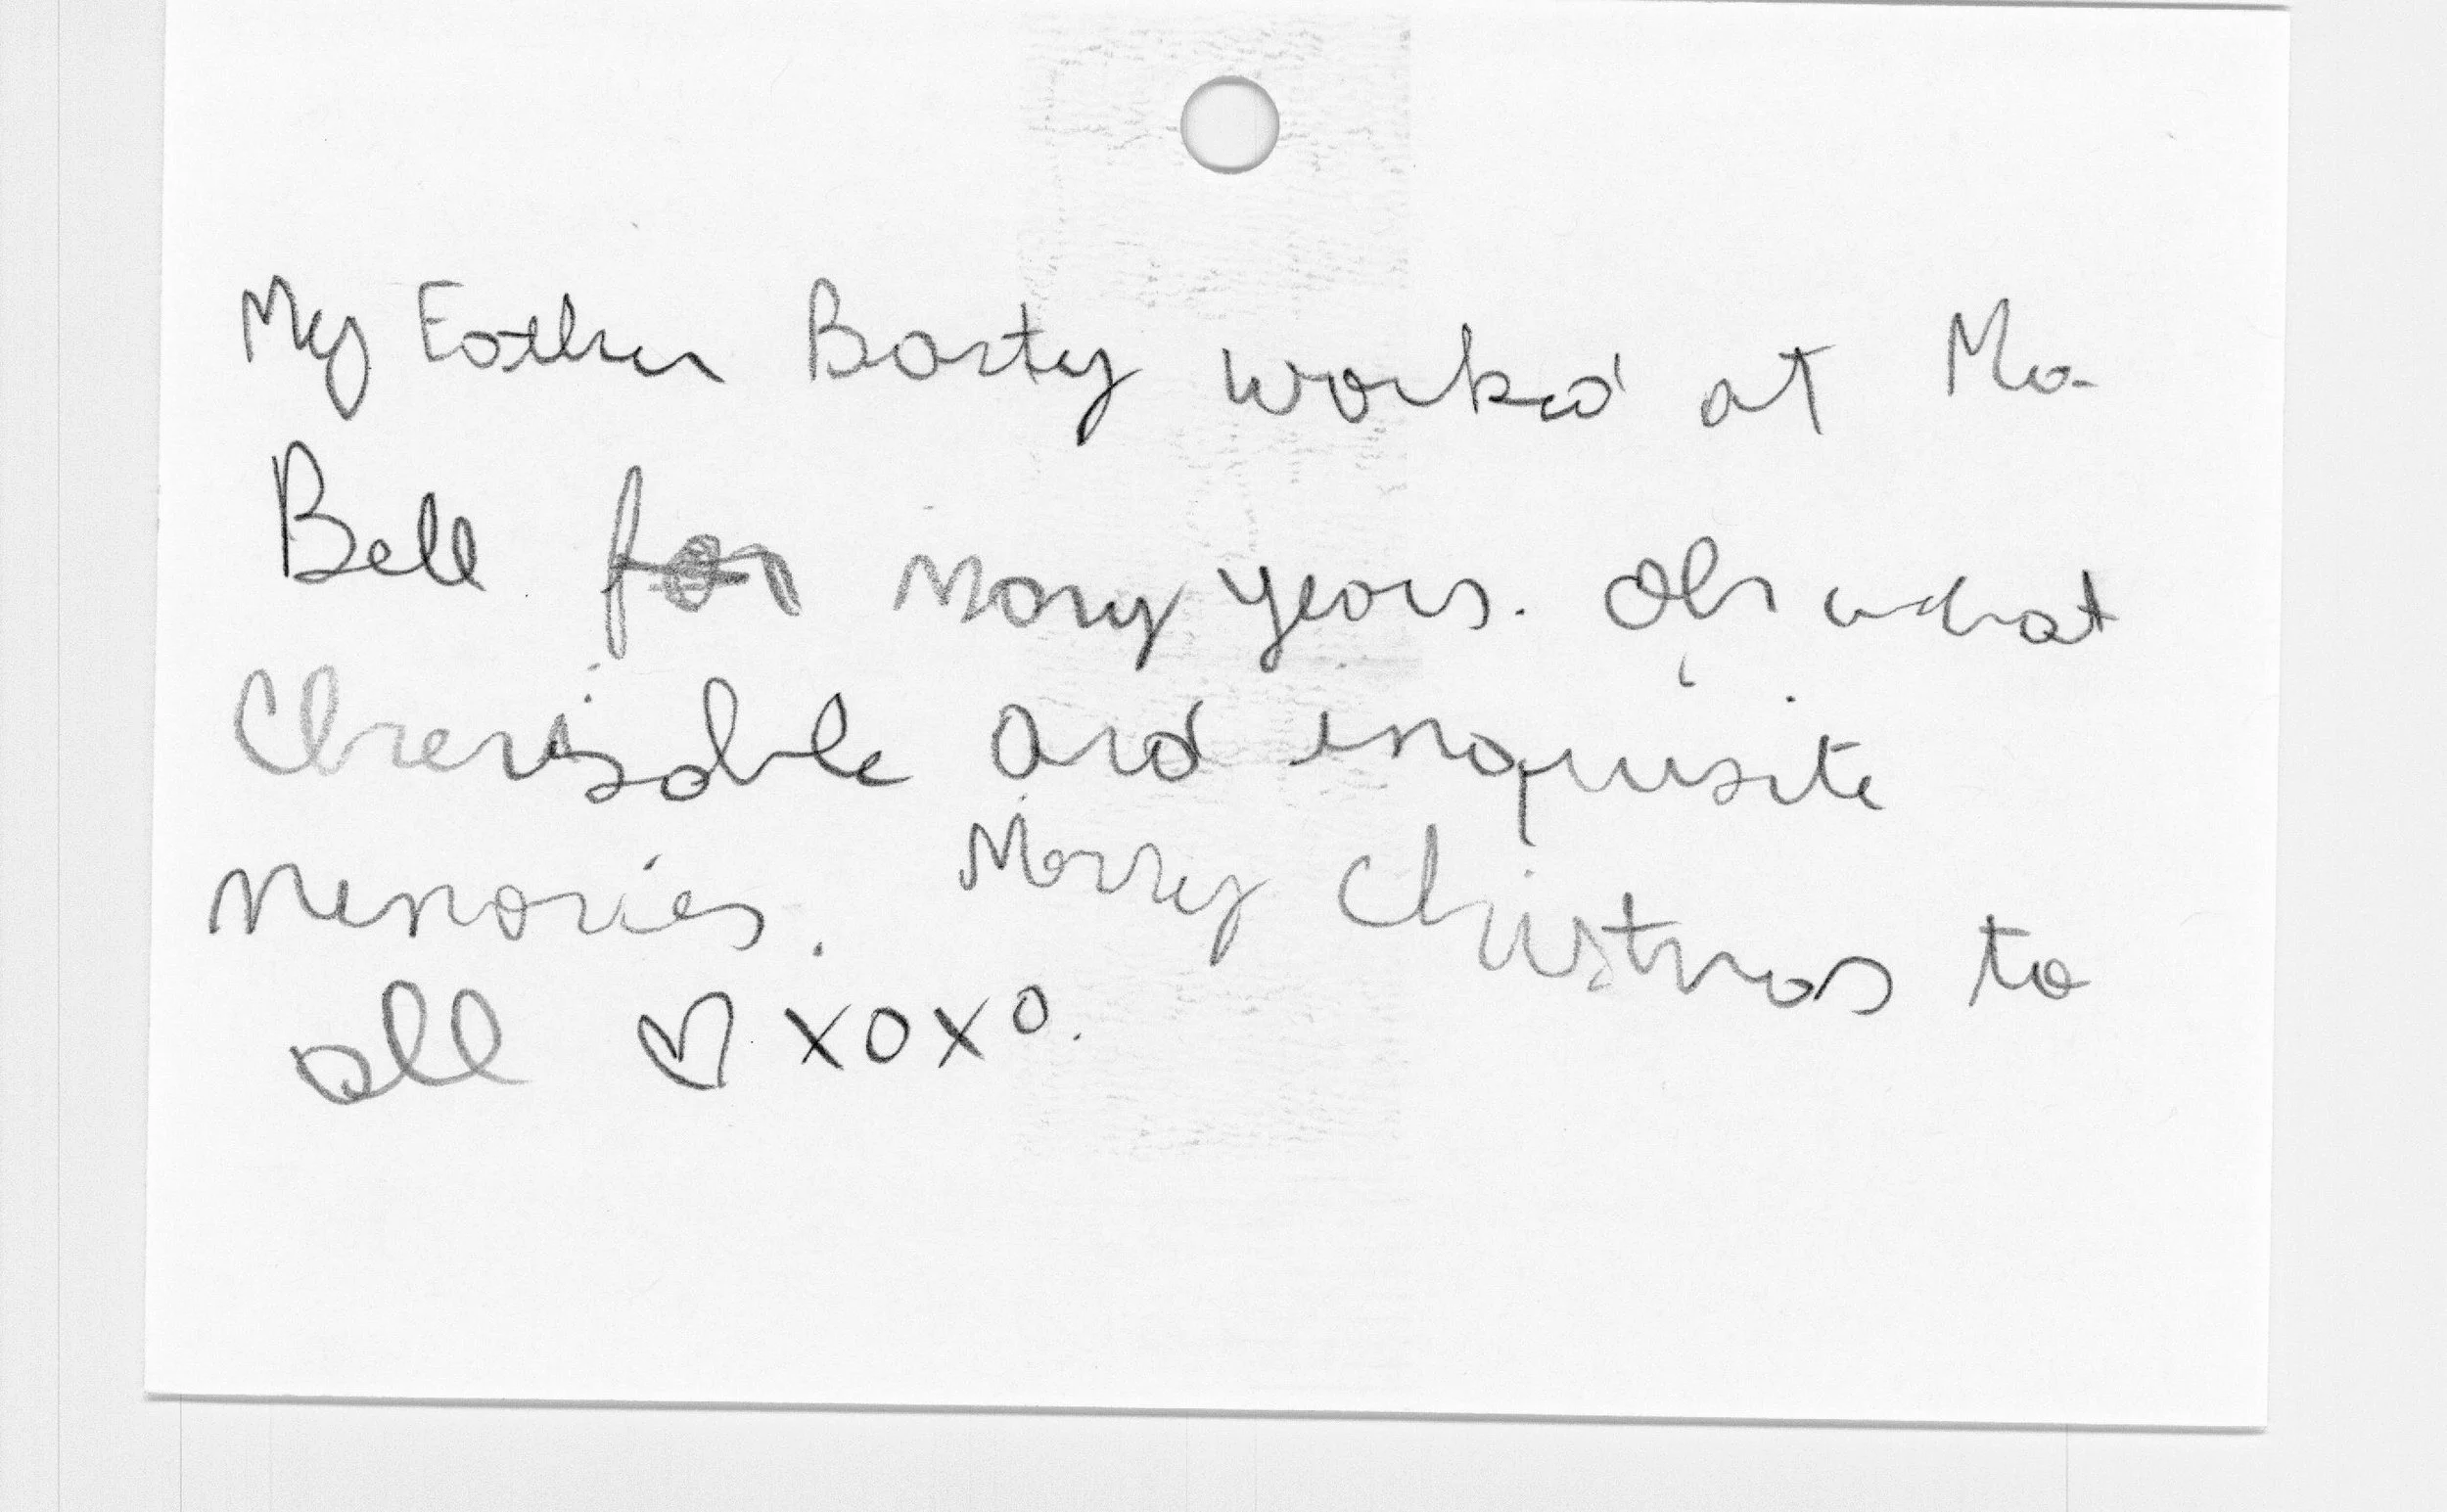 My Father Barty worked at Ma
Bell for many years. Oh what
Cherisable and inquisite
memories. Merry Christmas to
all ♡ xoxo.